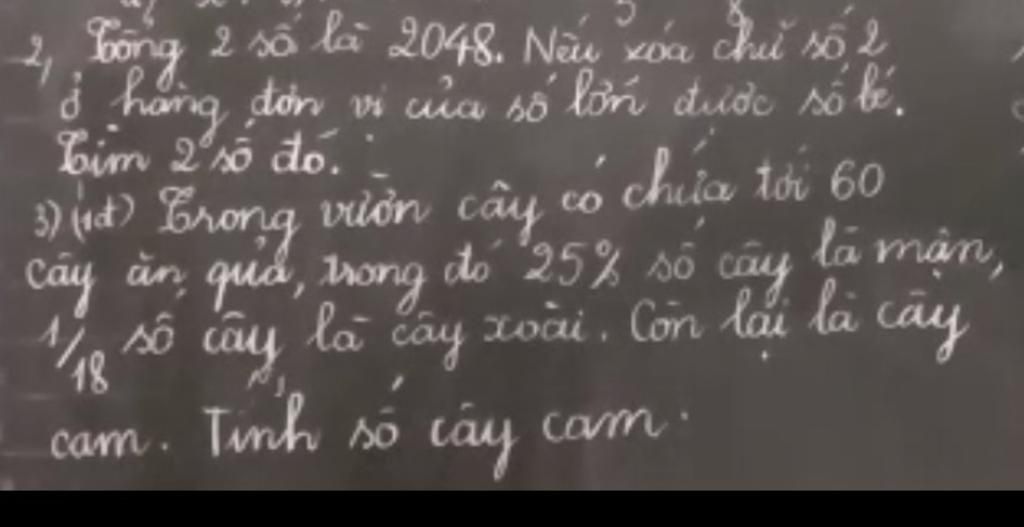 2, Tổng 2 số là 2048. Nếu xóa chữ số 2
ở hàng đơn vị của số lớn được số bé.
Tìm 2 số đó.
3) (1đ) Trong vườn cây có chứa tới 60
cây ăn quả, trong đó 25% số cây là mận,
1/18 số cây là cây xoài. Còn lại là cây
cam. Tính số cây cam.